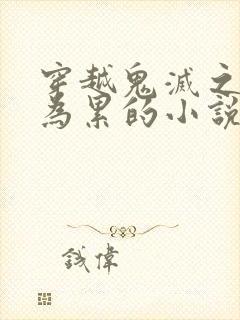 穿越鬼滅之
為累的小説
錢偉